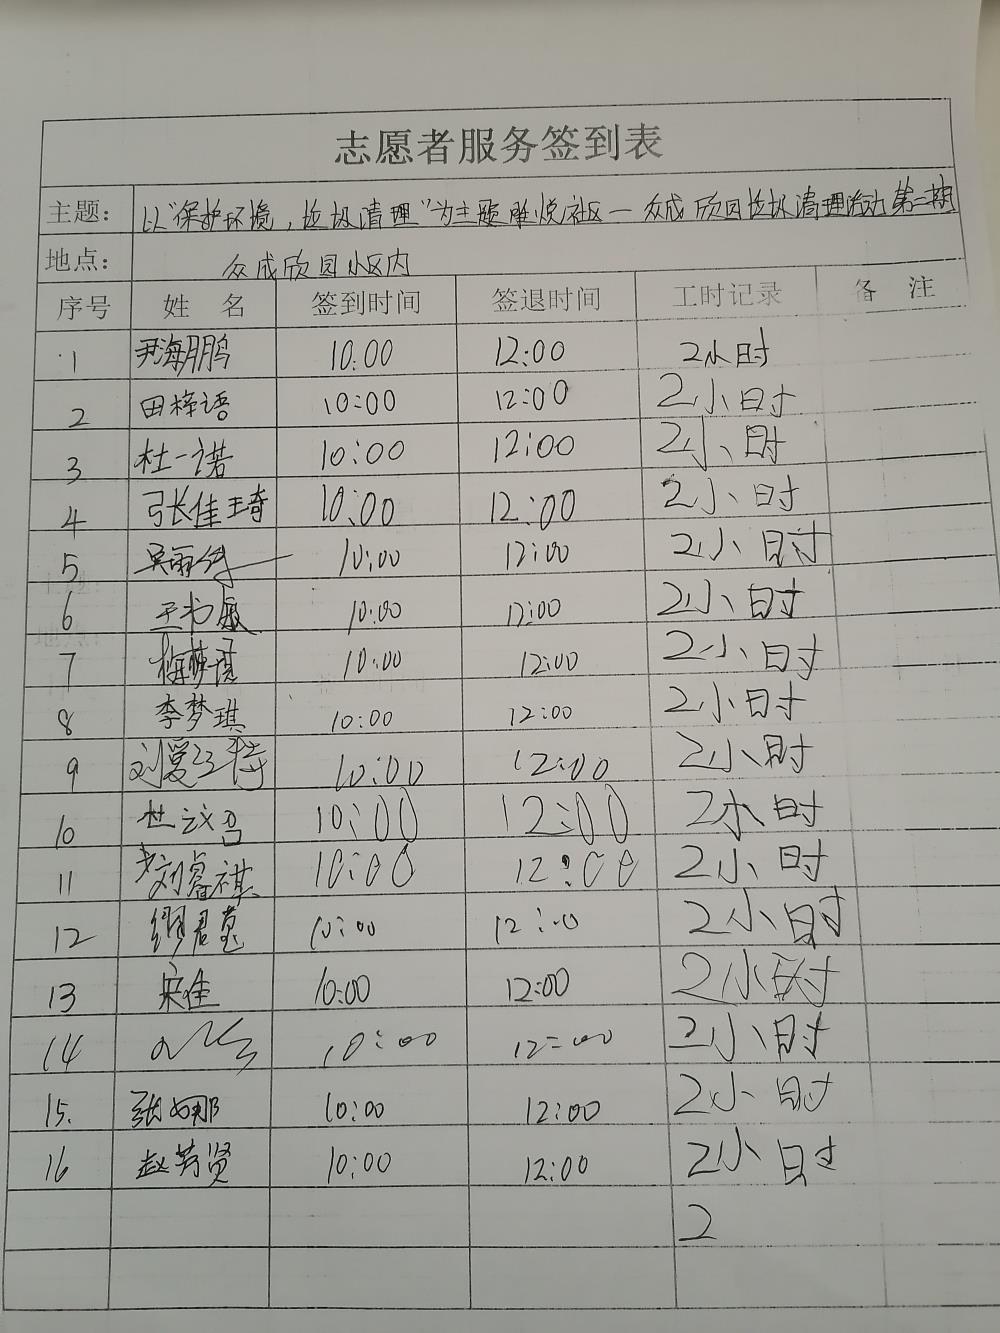 志愿者服务签到表
主题: 以"保护环境,垃圾清理"为主题雕悦社区—众成欣园垃圾清理活动第二期
地点: 众成欣园小区内
序号 姓 名 签到时间 签退时间 工时记录 备 注
1 尹海鹏 10:00 12:00 2小时
2 田梓语 10:00 12:00 2小时
3 杜一诺 10:00 12:00 2小时
4 张佳琦 10:00 12:00 2小时
5 吴丽 10:00 12:00 2小时
6 10:00 12:00 2小时
7 梅梦瑶 10:00 12:00 2小时
8 李梦琪 10:00 12:00 2小时
9 刘爱 10:00 12:00 2小时
10 10:00 12:00 2小时
11 刘睿祺 10:00 12:00 2小时
12 10:00 12:00 2小时
13 宋佳 10:00 12:00 2小时
14 10:00 12:00 2小时
15. 张娜 10:00 12:00 2小时
16 赵芳贤 10:00 12:00 2小时
2